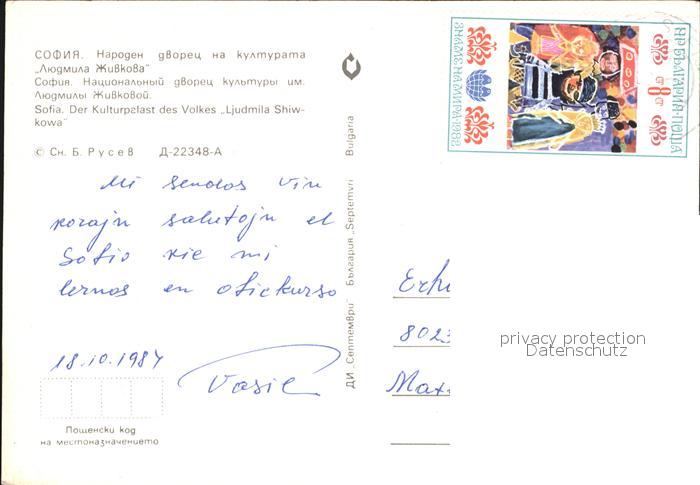 СОФИЯ. Народен дворец на културата
„Людмила Живкова“
София. Национальный дворец культуры им.
Людмилы Живковой.
Sofia. Der Kulturpalast des Volkes „Ljudmila Shiw-
kowa“
© Сн. Б. Русев Д-22348-А
Mi sendas vin
korajn salutojn el
Sofio kie mi
lernas en ofickurso
18.10.1984
Vasil
Пощенски код
на местоназначението
ДИ „Септември“ България „Septemvri“ Bulgaria
ЗНАМЕ НА МИРА·1982
НР БЪЛГАРИЯ·ПОЩА
8
802
privacy protection
Datenschutz